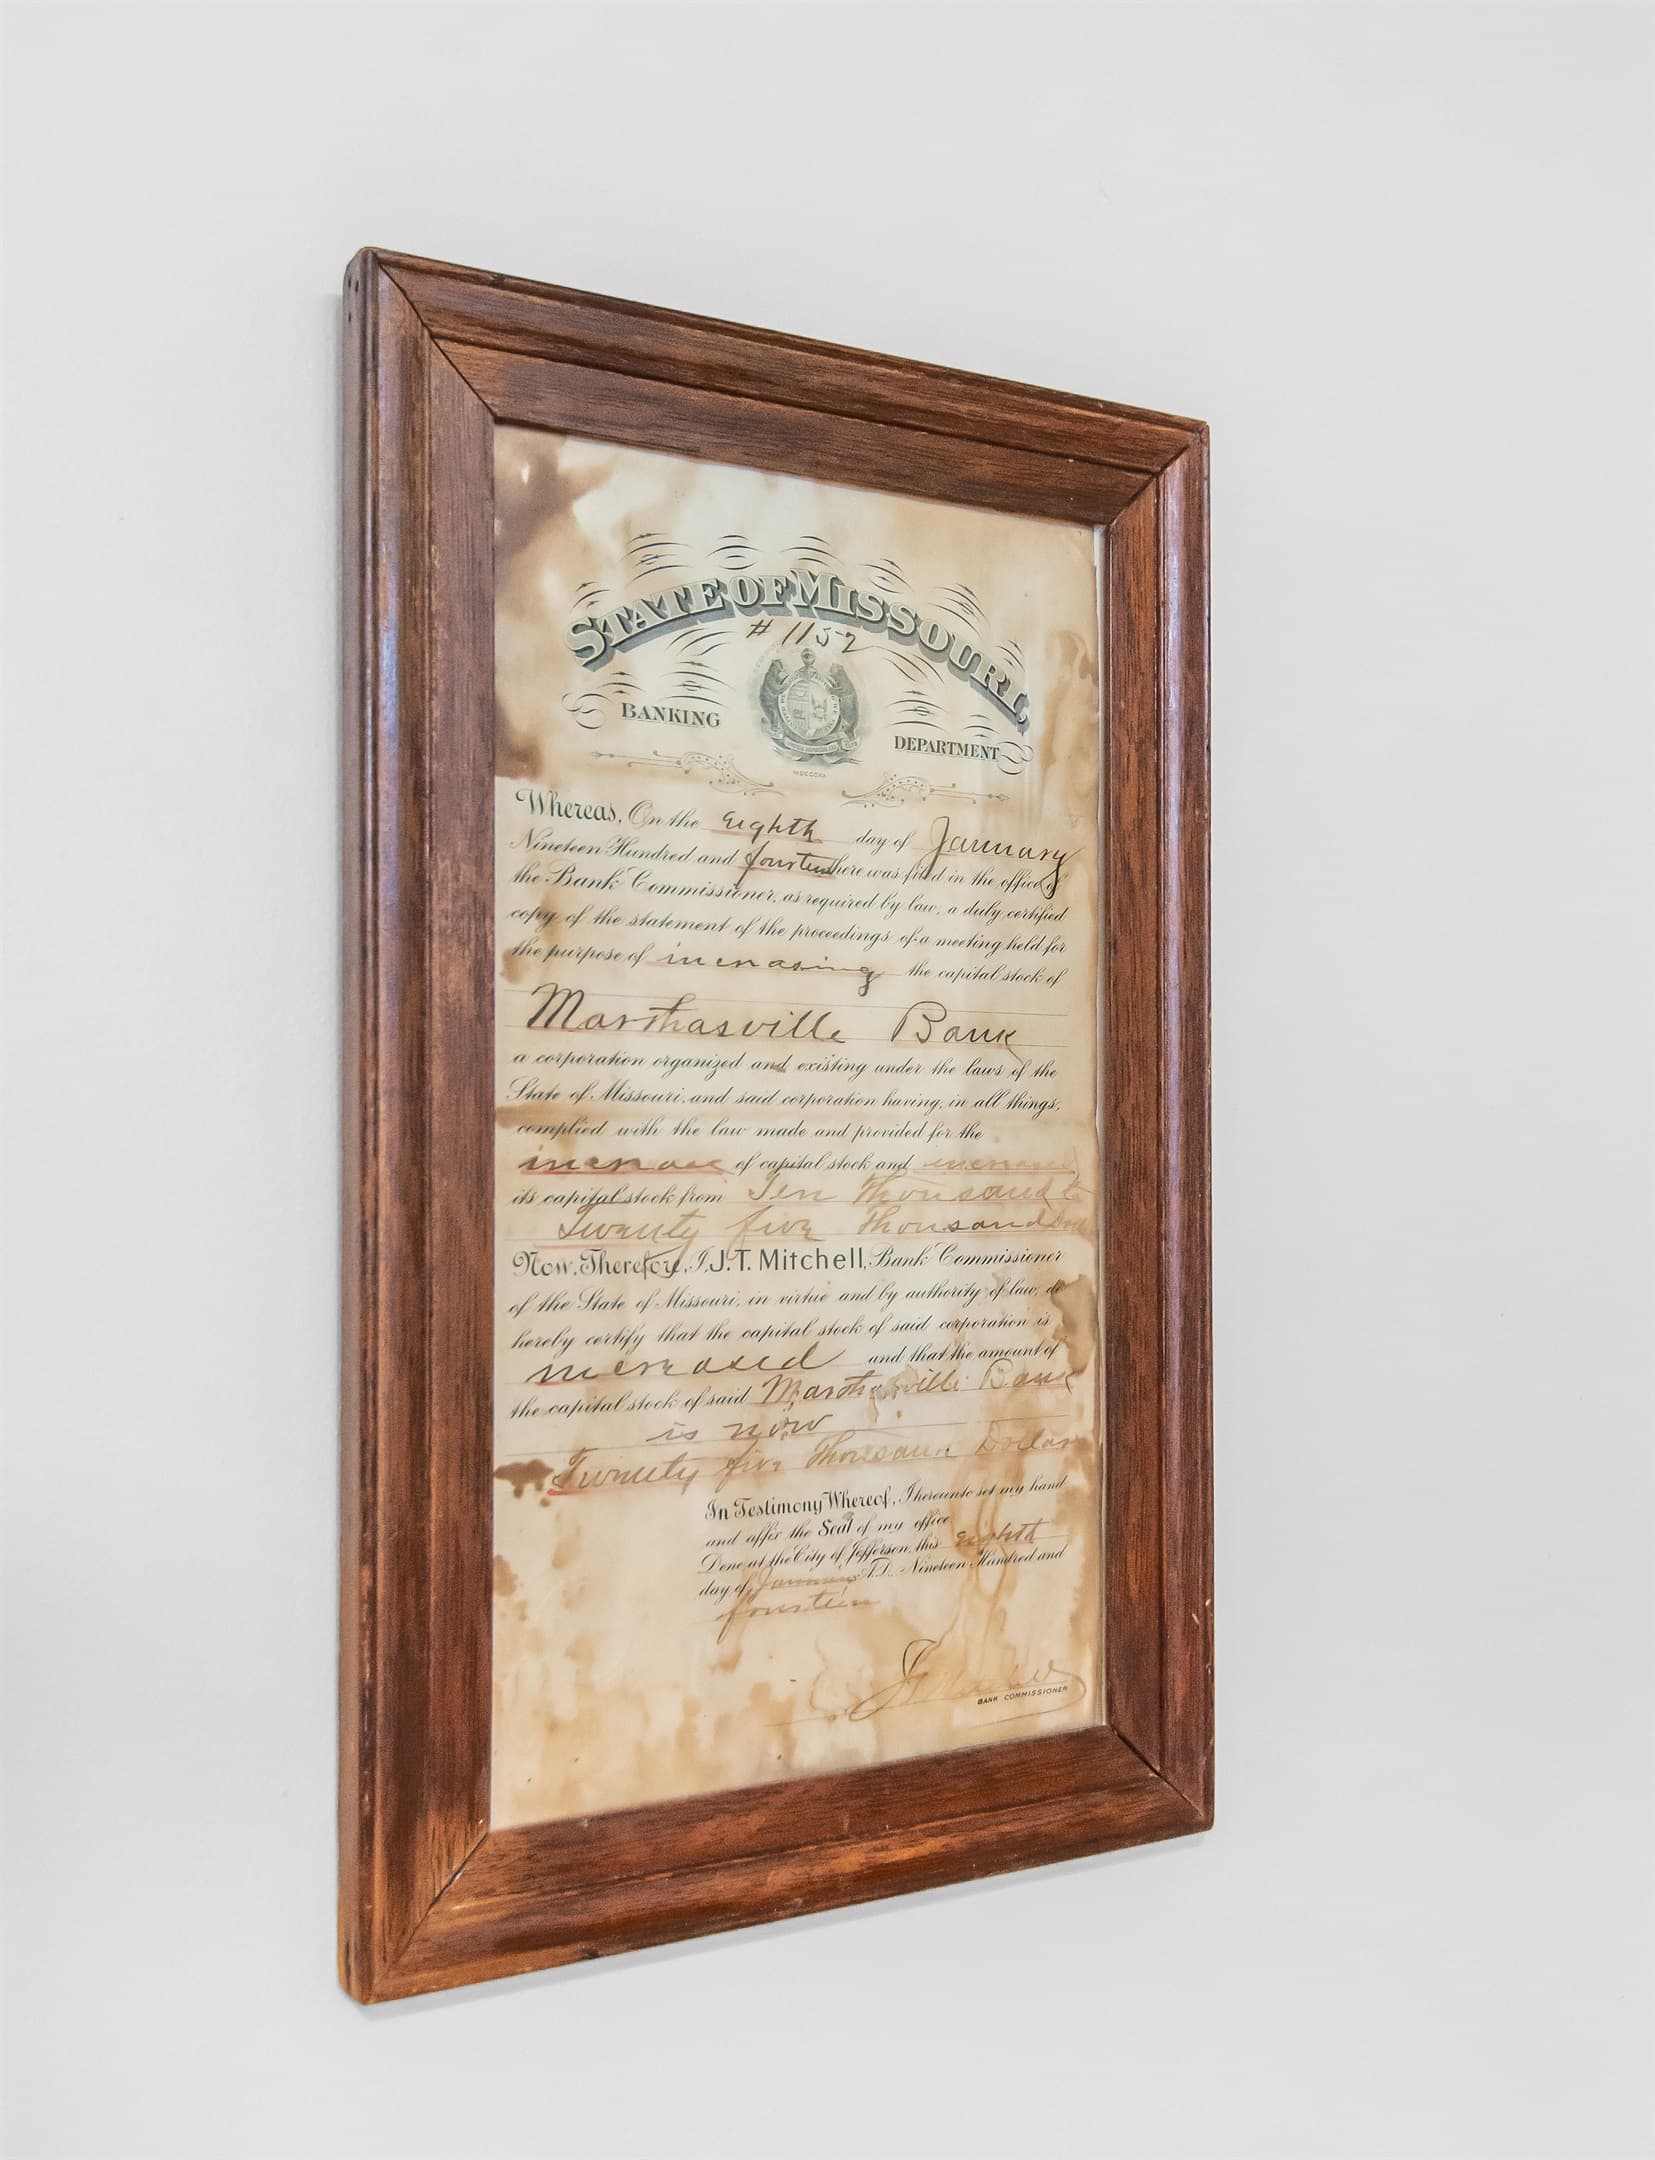 STATE OF MISSOURI,
# 1152
BANKING DEPARTMENT
MDCCCXX
Whereas, On the Eighth day of January
Nineteen Hundred and fourteen there was filed in the office of
the Bank Commissioner, as required by law, a duly certified
copy of the statement of the proceedings of a meeting held for
the purpose of increasing the capital stock of
Marthasville Bank
a corporation organized and existing under the laws of the
State of Missouri, and said corporation having, in all things,
complied with the law made and provided for the
increase of capital stock and increased
its capital stock from Ten Thousand to
Twenty five Thousand
Now, Therefore, I, J.T. Mitchell, Bank Commissioner
of the State of Missouri, in virtue and by authority of law, do
hereby certify that the capital stock of said corporation is
increased and that the amount of
the capital stock of said Marthasville Bank
is now
Twenty five Thousand Dollars
In Testimony Whereof, I hereunto set my hand
and affix the Seal of my office.
Done at the City of Jefferson, this eighth
day of January A.D. Nineteen Hundred and
fourteen
BANK COMMISSIONER